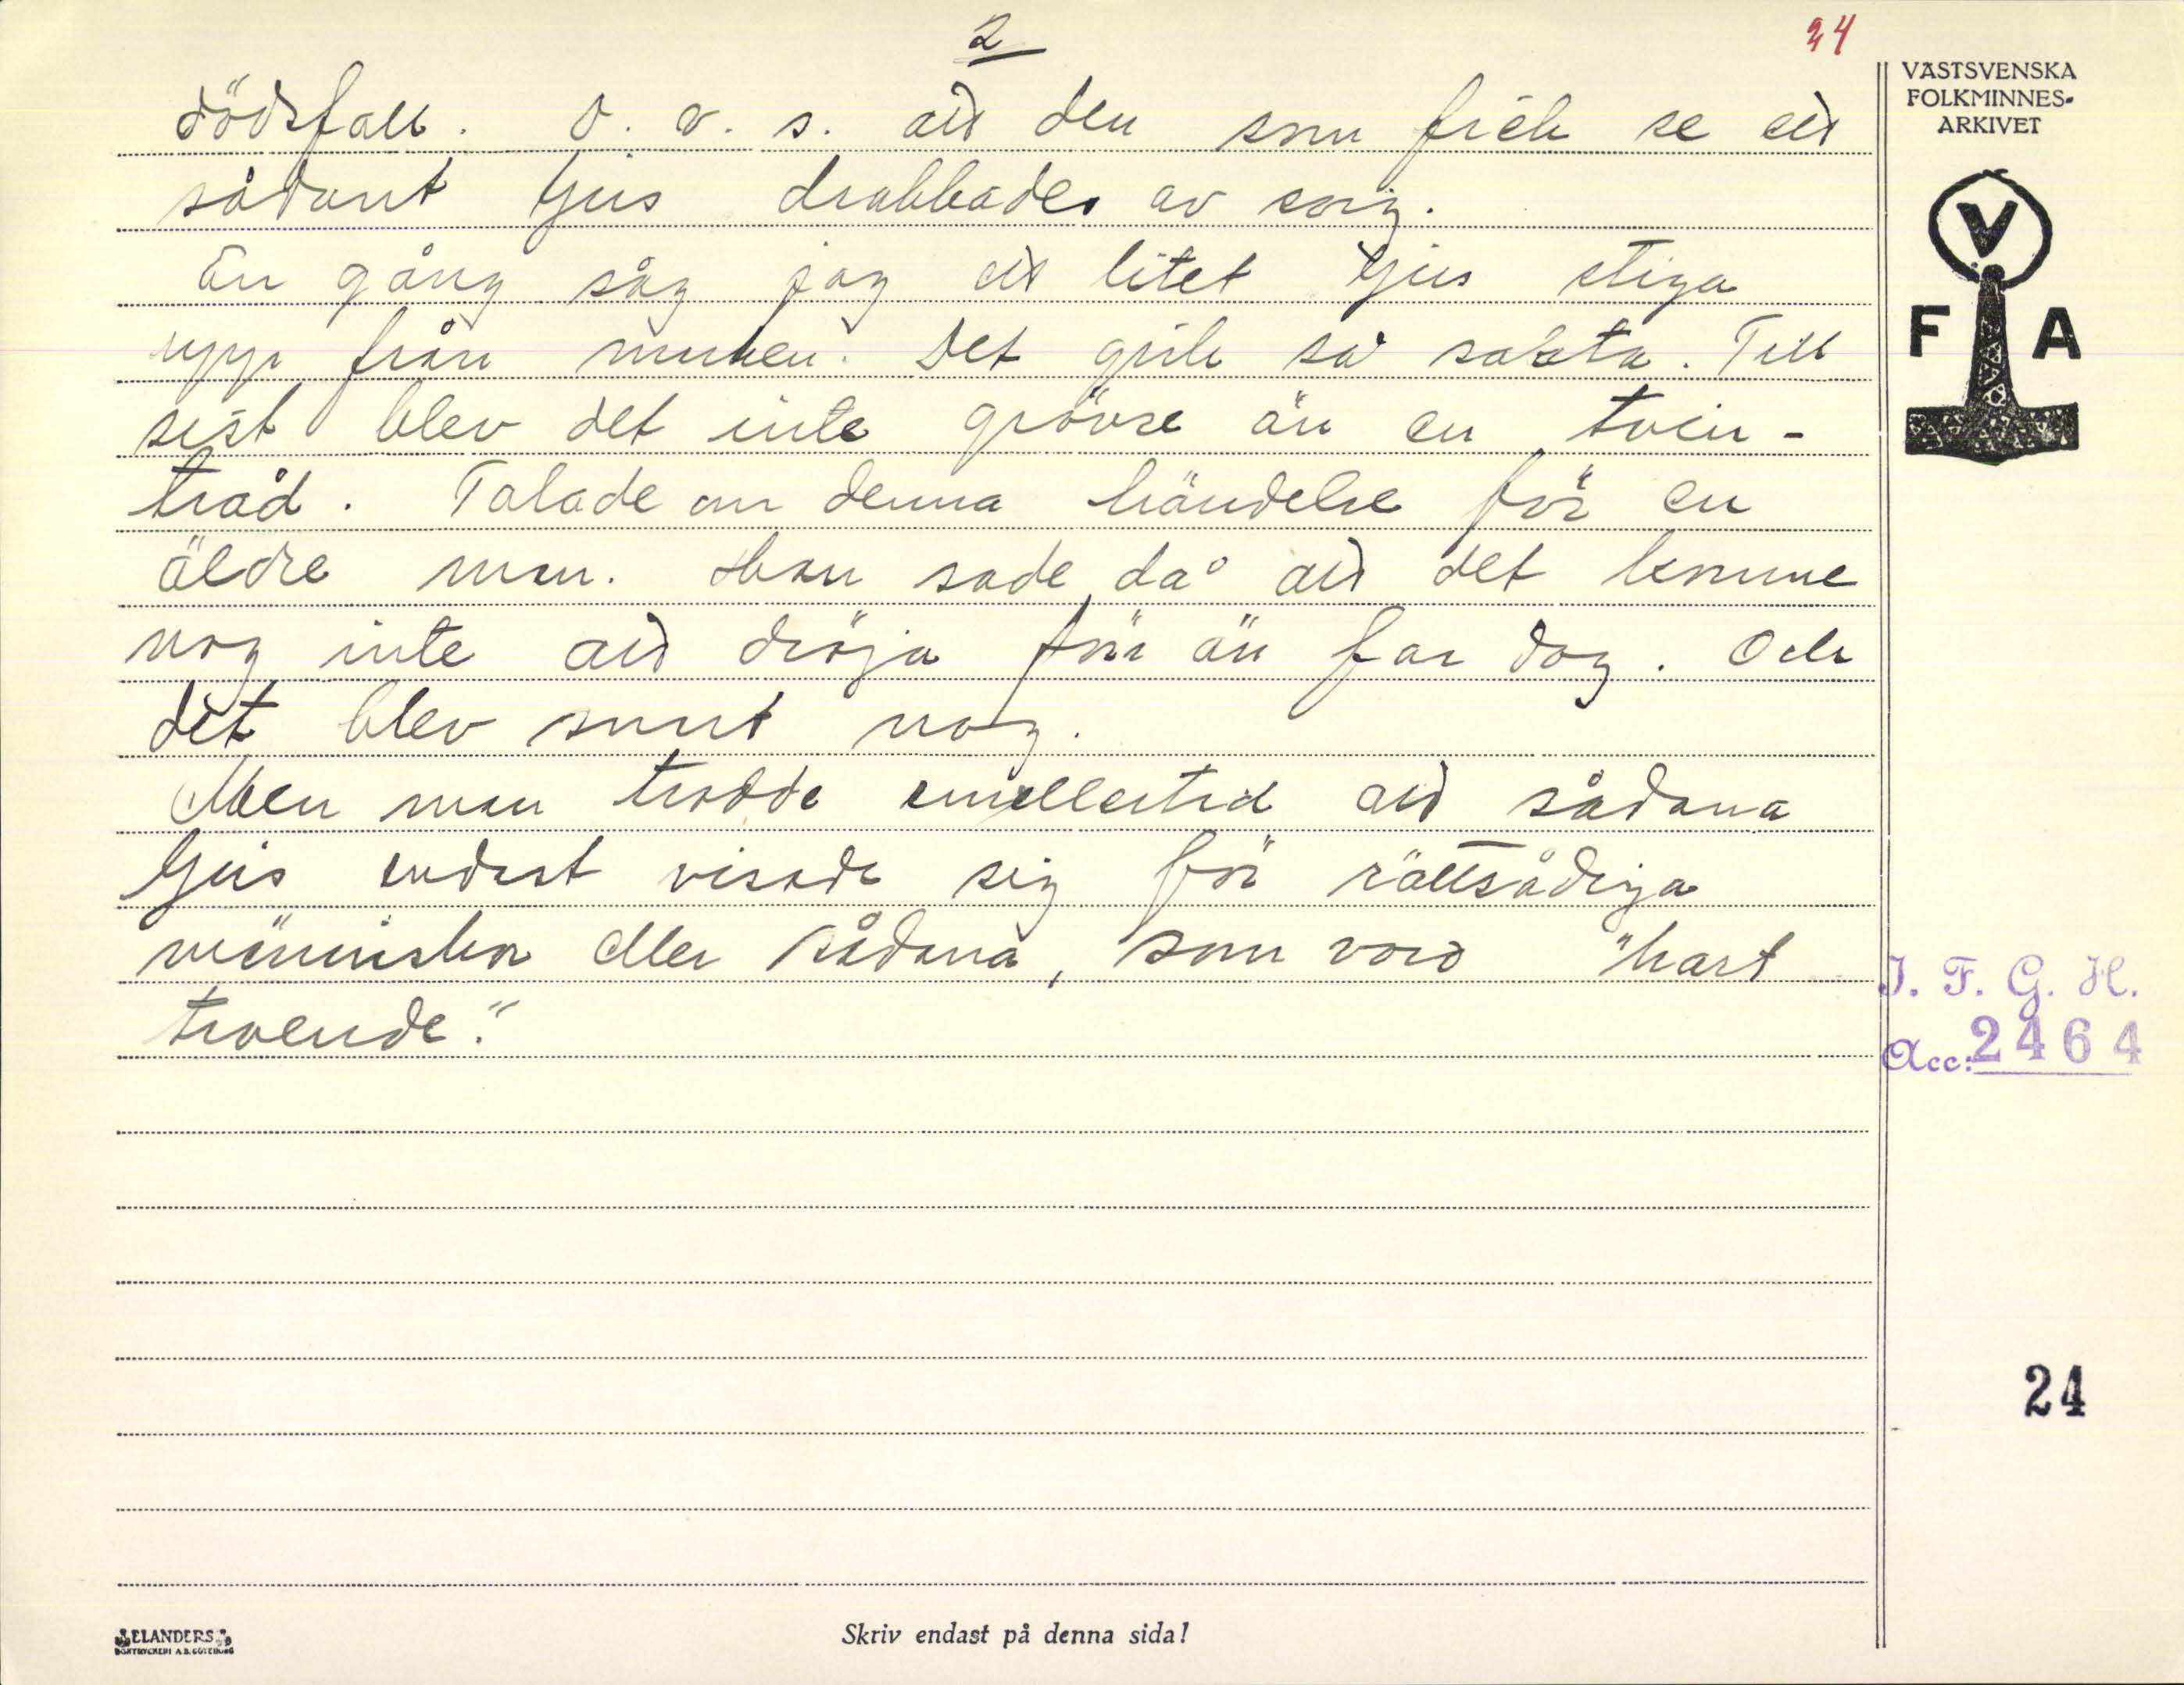 2
24
dödsfall. D. v. s. att den som fick se ett
sådant ljus drabbades av sorg.
En gång såg jag ett litet ljus stiga
upp från marken. Det gick så sakta. Till
sist blev det inte grövre än en tvin-
tråd. Talade om denna händelse för en
äldre man. Han sade då att det komme
nog inte att dröja förr än far dog. Och
det blev sant nog.
Men man trodde emellertid att sådana
ljus endast visade sig för rättsådiga
människor eller sådana, som voro "hart
troende."
VÄSTSVENSKA
FOLKMINNES-
ARKIVET
V
F A
I. F. G. H.
Acc: 2464
24
ELANDERS
BOKTRYCKERI A.B. GÖTEBORG
Skriv endast på denna sida!